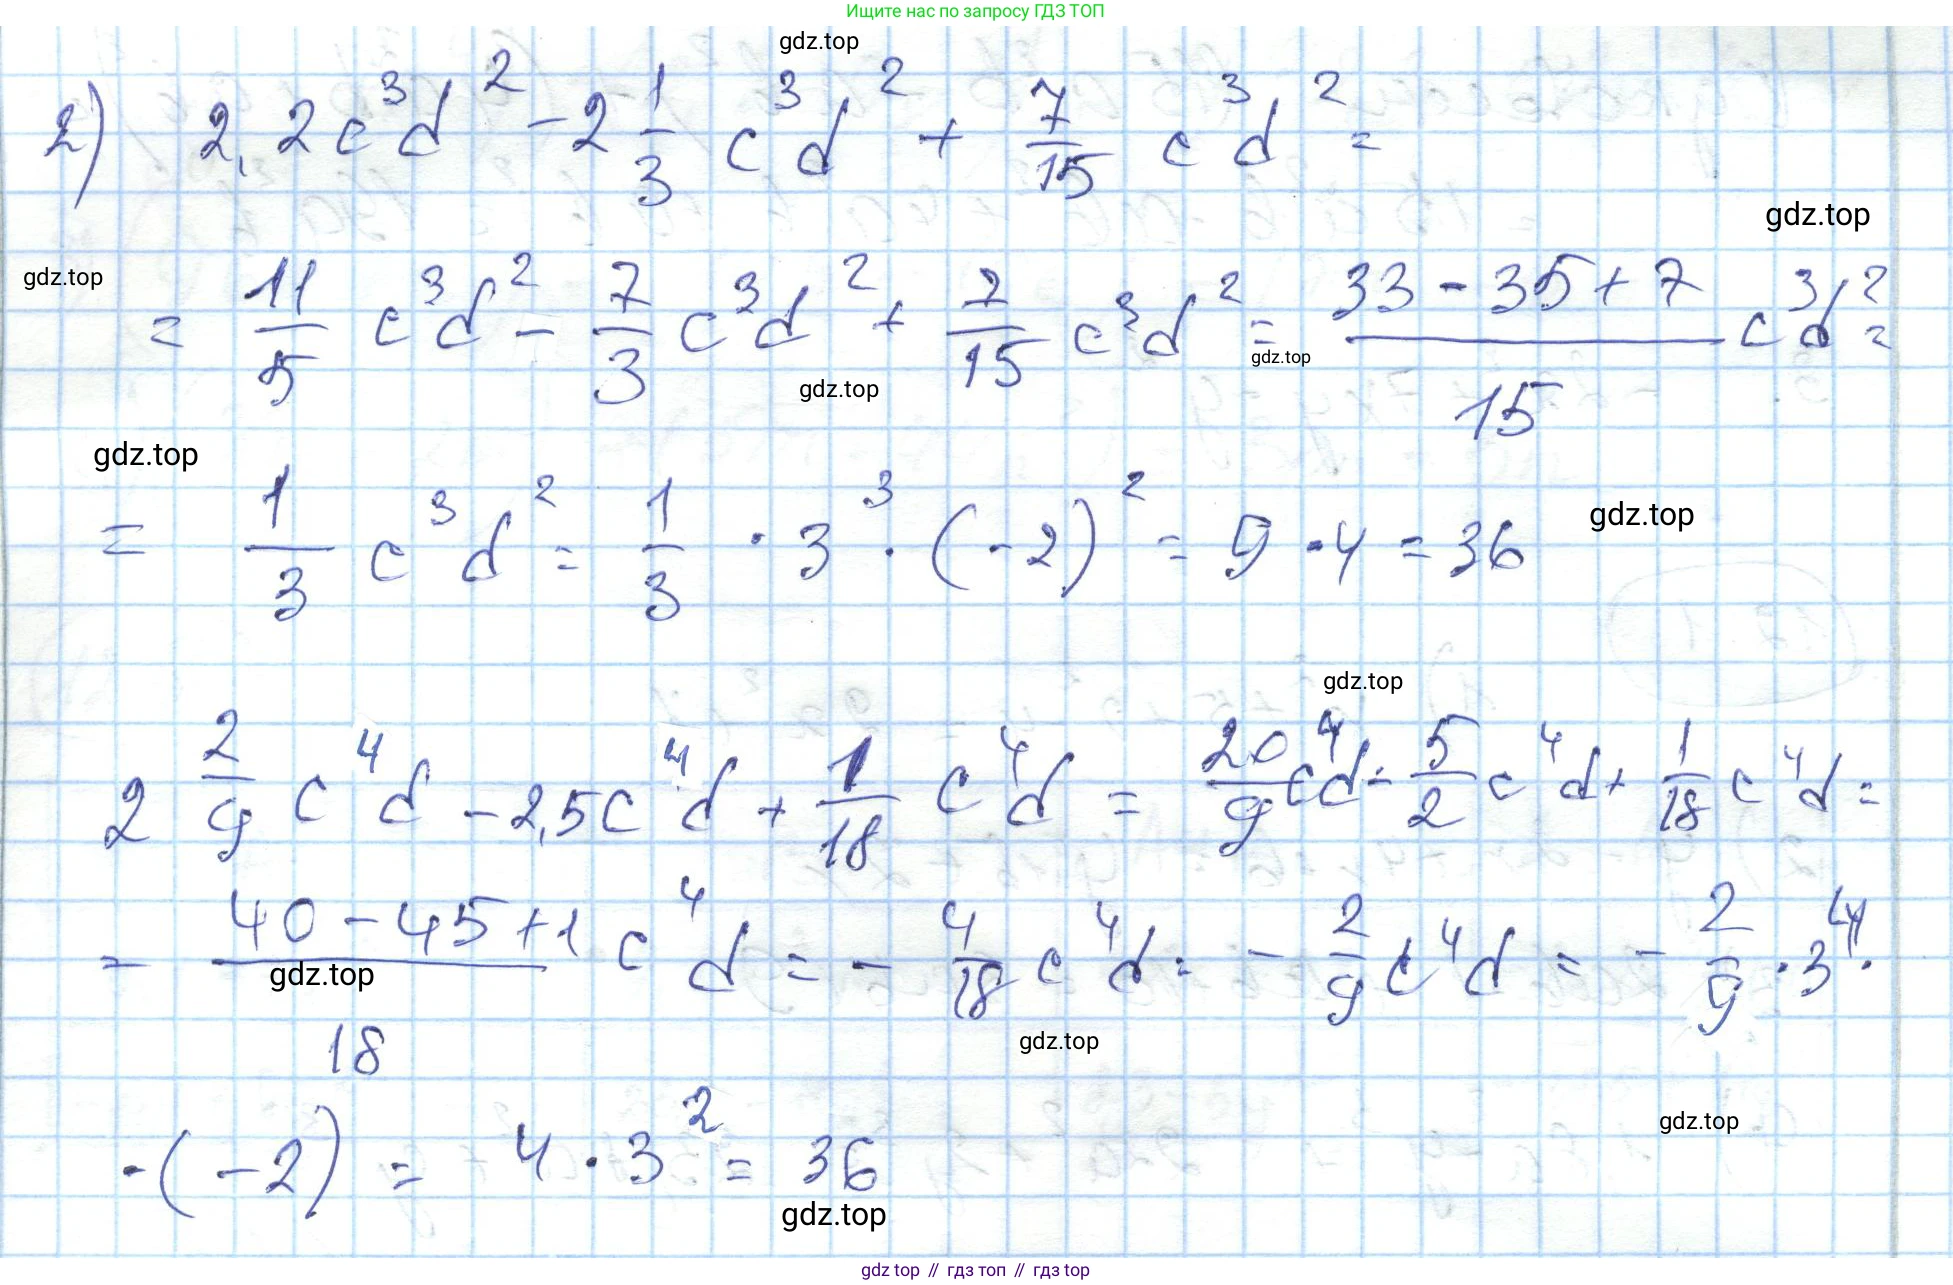 Ищите нас по запросу ГДЗ ТОП
gdz.top
2) 2,2c³d² - 2 1/3 c³d² + 7/15 c³d² =
gdz.top
gdz.top
= 11/5 c³d² - 7/3 c³d² + 7/15 c³d² = (33 - 35 + 7)/15 c³d² =
gdz.top
gdz.top
gdz.top
= 1/3 c³d² = 1/3 · 3³ · (-2)² = 9 · 4 = 36
gdz.top
gdz.top
2 2/9 c⁴d - 2,5c⁴d + 1/18 c⁴d = 20/9 c⁴d - 5/2 c⁴d + 1/18 c⁴d =
= (40 - 45 + 1)/18 c⁴d = - 4/18 c⁴d = - 2/9 c⁴d = - 2/9 · 3⁴ ·
gdz.top
gdz.top
gdz.top
· (-2) = 4 · 3² = 36
gdz.top
gdz top // гдз топ // гдз top